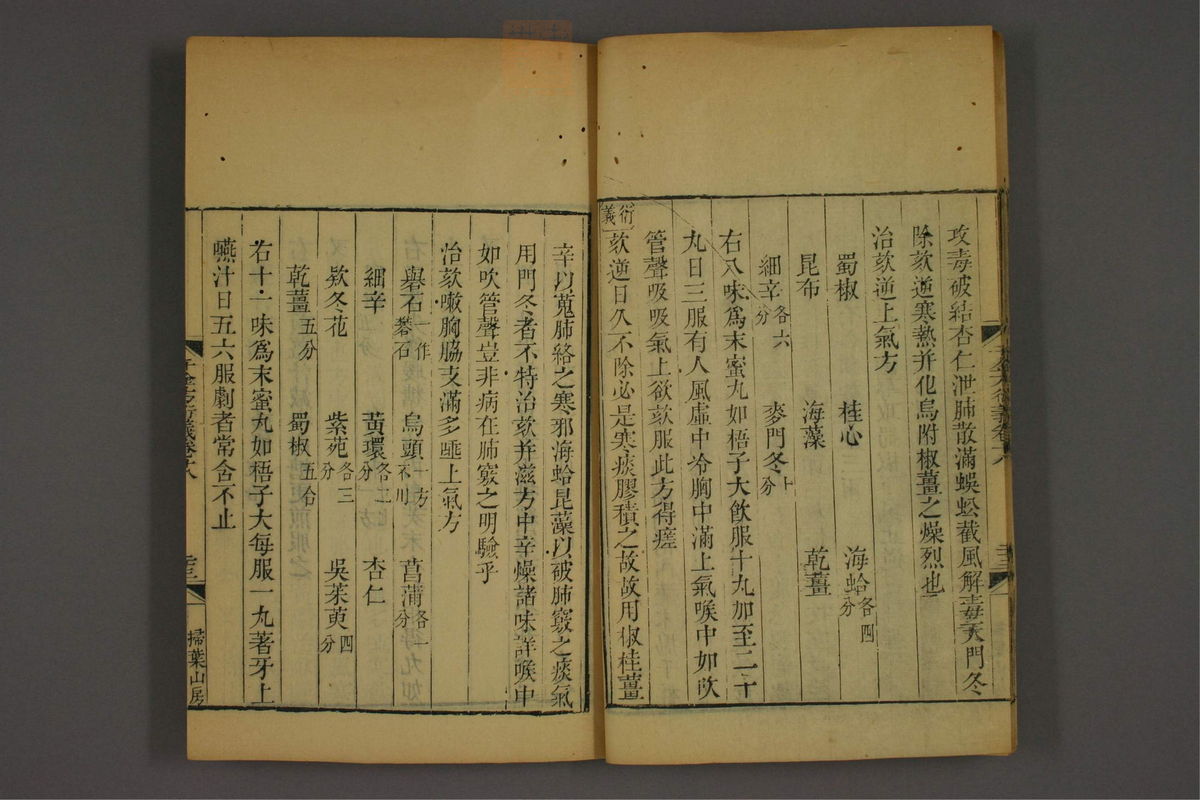 攻毒破結杏仁泄肺散滿蜈蚣截風解毒天門冬
除欬逆寒熱并化烏附椒薑之燥烈也
治欬逆上氣方
蜀椒 桂心 海蛤各四分
昆布 海藻 乾薑
細辛各六分 麥門冬十分
右八味爲末蜜丸如梧子大飲服十丸加至二十
丸日三服有人風虛中冷胸中滿上氣喉中如吹
管聲吸吸氣上欲欬服此方得瘥
衍義 欬逆日久不除必是寒痰膠積之故故用椒桂薑
辛以蒐肺絡之寒邪海蛤昆藻以破肺竅之痰氣
用門冬者不特治欬并滋方中辛燥諸味詳喉中
如吹管聲豈非病在肺竅之明驗乎
治欬嗽胸脇支滿多唾上氣方
礜石一作礬石 烏頭一方不用 菖蒲各一分
細辛 黃環各二分 杏仁
欵冬花 紫苑各三分 吳茱萸四分
乾薑五分 蜀椒五合
右十一味爲末蜜丸如梧子大每服一丸著牙上
嚥汁日五六服劇者常含不止
掃葉山房